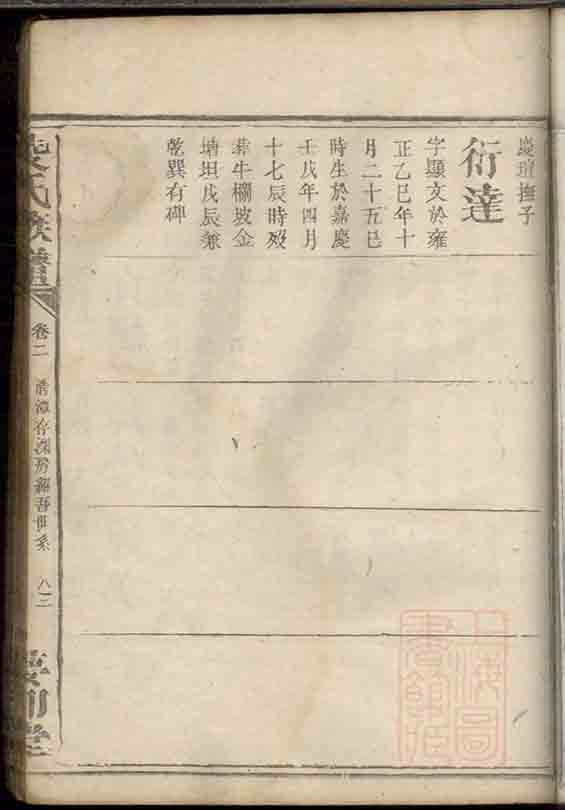 慶璮撫子
衍達
字顯文於雍
正乙巳年十
月二十五巳
時生於嘉慶
壬戌年四月
十七辰時歿
葬牛欄坡金
塘坦戌辰兼
乾巽有碑
氏族譜
卷二
世系
八三
上海圖
書館藏